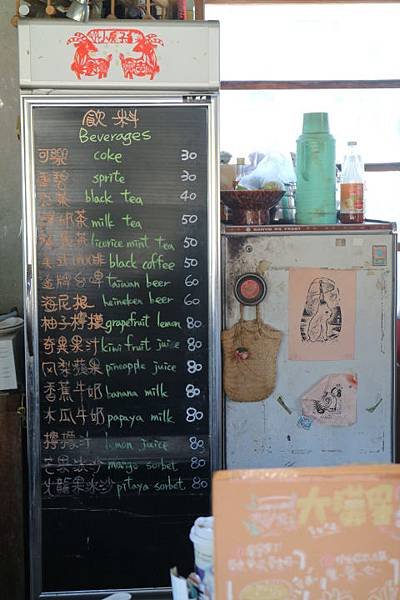 飲料
Beverages
可樂 coke 30
雪碧 sprite 30
紅茶 black tea 40
鮮奶茶 milk tea 50
licorice mint tea 50
美式咖啡 black coffee 50
金牌台啤 taiwan beer 60
海尼根 heineken beer 60
柚子檸檬 grapefruit lemon 80
奇異果汁 kiwi fruit juice 80
鳳梨蘋果 pineapple juice 80
香蕉牛奶 banana milk 80
木瓜牛奶 papaya milk 80
檸檬汁 lemon juice 80
芒果冰沙 mango sorbet 80
火龍果冰沙 pitaya sorbet 80